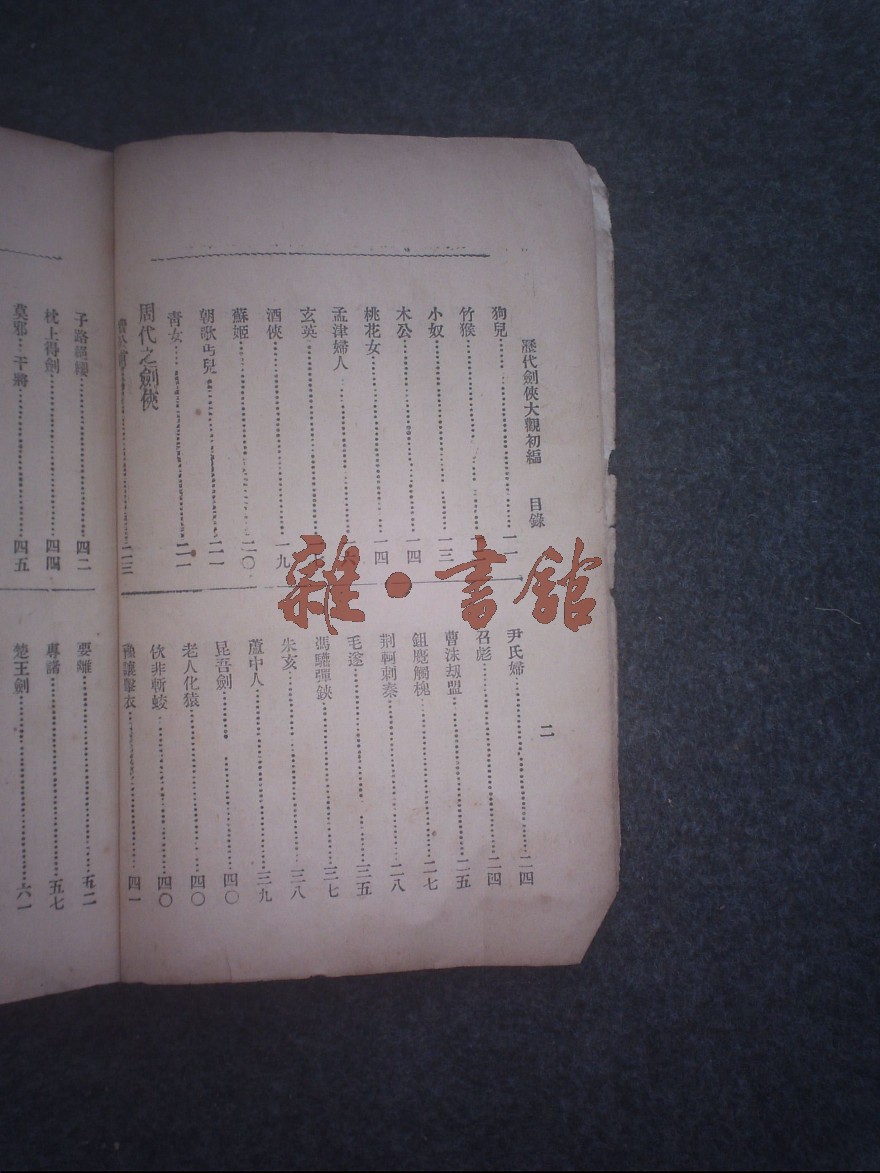 歷代劍俠大觀初編　目錄　二
狗兒……一一
竹猴
小奴……一三
木公……一四
桃花女……一四
孟津婦人
玄英
酒俠……一九
蘇姬……二〇
朝歌丐兒……二一
青女……二一
周代之劍俠
……二三
尹氏婦……二四
召彪……二四
曹沬劫盟……二五
鉏麑觸槐……二七
荆軻刺秦……二八
毛遂……三五
馮驩彈鋏……三七
朱亥……三八
蘆中人……三九
昆吾劍……四〇
老人化猿……四〇
佽非斬蛟……四〇
豫讓擊衣……四一
子路……四二
枕上得劍……四四
莫邪 干將……四五
要離……五二
專諸……五七
楚王劍……六一
雜·書館